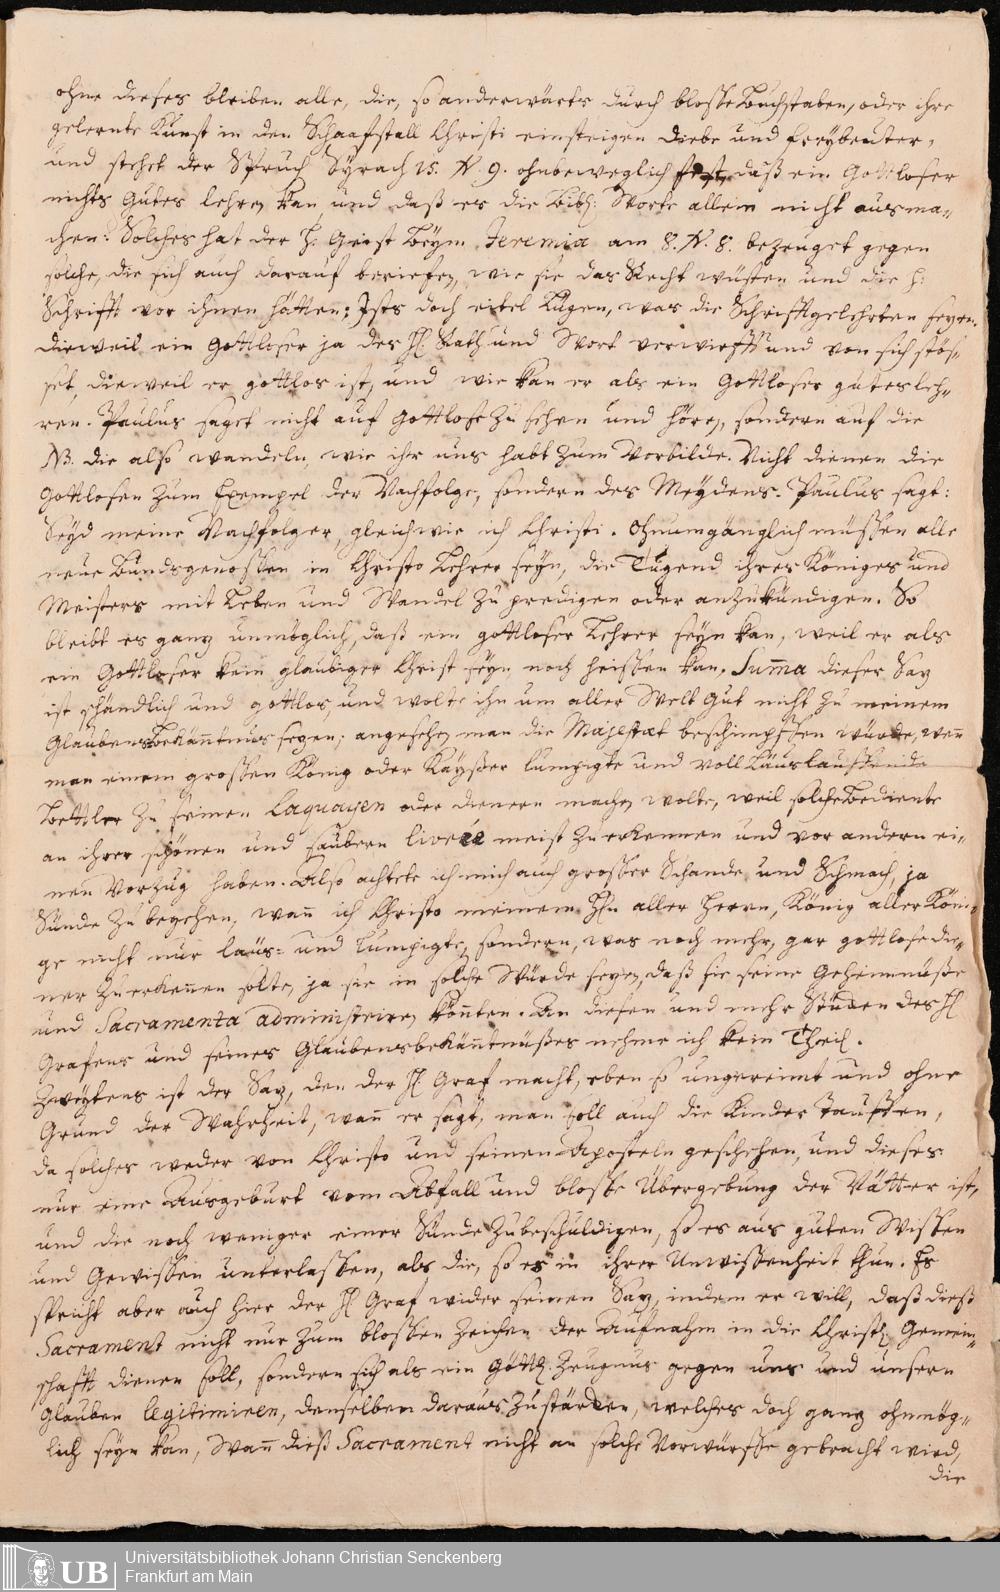 ohne dieses bleiben alle, die, so anderwärts durch blosse Buchstaben, oder ihre
gelernte Kunst in den Schaafstall Christi einsteigen Diebe und Freybeuter,
und stehet der Spruch Syrach 15. V. 9. ohnbeweglich fest, daß ein Gottloser
nichts Gutes lehren kan und daß es die Bibl: Worte allein nicht ausma-
chen: Solches hat der H. Geist beym Jeremia am 8. V. 8. bezeuget gegen
solche, die sich auch darauf berieffen, wie sie das Recht wüsten und die H:
Schrifft vor ihnen hätten: Ists doch eitel Lügen, was die Schrifftgelehrten seyen.
dieweil ein Gottloser ja des H Rath und Wort verwirfft und von sich stös-
set, dieweil er gottlos ist, und wie kan er als ein Gottloser gutes leh-
ren. Paulus saget nicht auf Gottlose zu sehen und hören, sondern auf die
NB. die also wandeln wie ihr uns habt zum Vorbilde. Nicht dienen die
Gottlosen zum Exempel der Nachfolge, sondern des Meydens. Paulus sagt:
Seyd meine Nachfolger, gleichwie ich Christi. Ohnumgänglich müssen alle
neue Bundsgenossen in Christo Lehrer seyn, die Tugend ihres Königes und
Meisters mit Leben und Wandel zu predigen oder anzukündigen. So
bleibt es ganz unmöglich, daß ein gottloser Lehrer seyn kan, weil er als
ein Gottloser kein glaubiger Christ seyn noch heissen kan. Suma dieser Saz
ist schändlich und gottlos, und wolte ihn um aller Welt Gut nicht zu meinem
Glaubensbekäntnüs sezen; angesehen man die Majestæt beschimpffen würde, wen
man einem grossen König oder Kayßer lumpigte und voll Läus lauffende
Bettler zu seinen Laquayen oder dienern machen wolte, weil solche Bediente
an ihrer schönen und saubern livrée meist zu erkennen und vor andern ei-
nen Vorzug haben. Also achtete ich mich auch grosser Schande und Schmach, ja
Sünde zu begehen, wan ich Christo meinem Hn aller Herrn, König aller Köni-
ge nicht nur laus- und lumpigte, sondern, was noch mehr, gar gottlose die-
ner zuerkennen solte, ja sie in solche Würde sezen, daß sie seine Geheimnüße
und Sacramenta administriren könten. An diesen und mehr Stüken des H
Grafens und seines Glaubensbekäntnüßes nehme ich kein Theil.
Zweytens ist der Saz, den der H Graf macht, eben so ungereimt und ohne
Grund der Wahrheit, wan er sagt, man soll auch die Kinder tauffen,
da solches weder von Christo und seinen Aposteln geschehen, und dieses
nur eine Ausgeburt vom Abfall und blosse Übergebung der Vätter ist,
und die noch weniger einer Sünde zubeschuldigen, so es aus guten Wissen
und Gewissen unterlassen, als die, so es in ihrer Unwissenheit thun. Es
spricht aber auch hier der H Graf wider seinen Saz, indem er will, daß dieß
Sacrament nicht nur zum blossen Zeichen der Aufnahm in die Christl. Gemein-
schafft dienen soll, sondern sich als ein Göttl. Zeugnus gegen uns und unsern
Glauben legitimiren, denselben daraus zu stärken, welches doch ganz ohnmög-
lich seyn kan, Wan dieß Sacrament nicht an solche Vorwürffe gebracht wird,
die
UB
Universitätsbibliothek Johann Christian Senckenberg
Frankfurt am Main